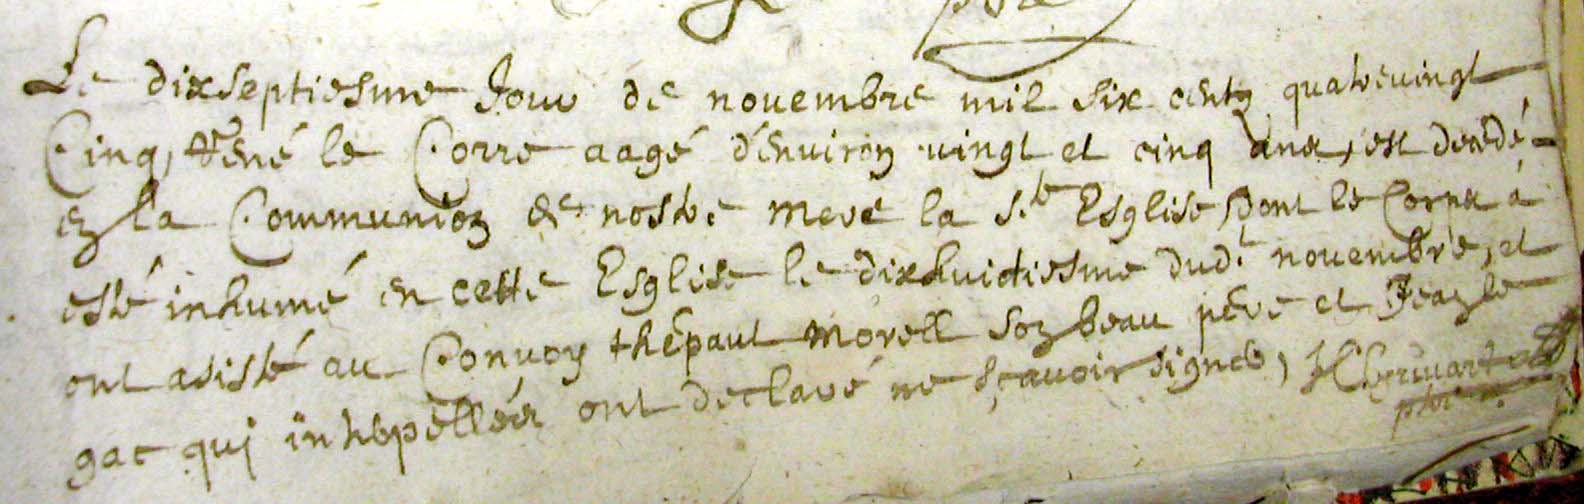 Le dixseptiesme Jour de novembre mil six cents quatrevingt
Cinq, René le Corre aagé d'énviron vingt et cinq ans, est decédé
en la Communion de nostre mere la Ste Esglise, dont le Corps à
esté inhumé en cette Esglise le dixhuictiesme dudt novembre, et
ont asisté au Convoy thépaut Morell son beau pére et Jean le
gac qui interpellés ont declaré ne sçavoir signer,